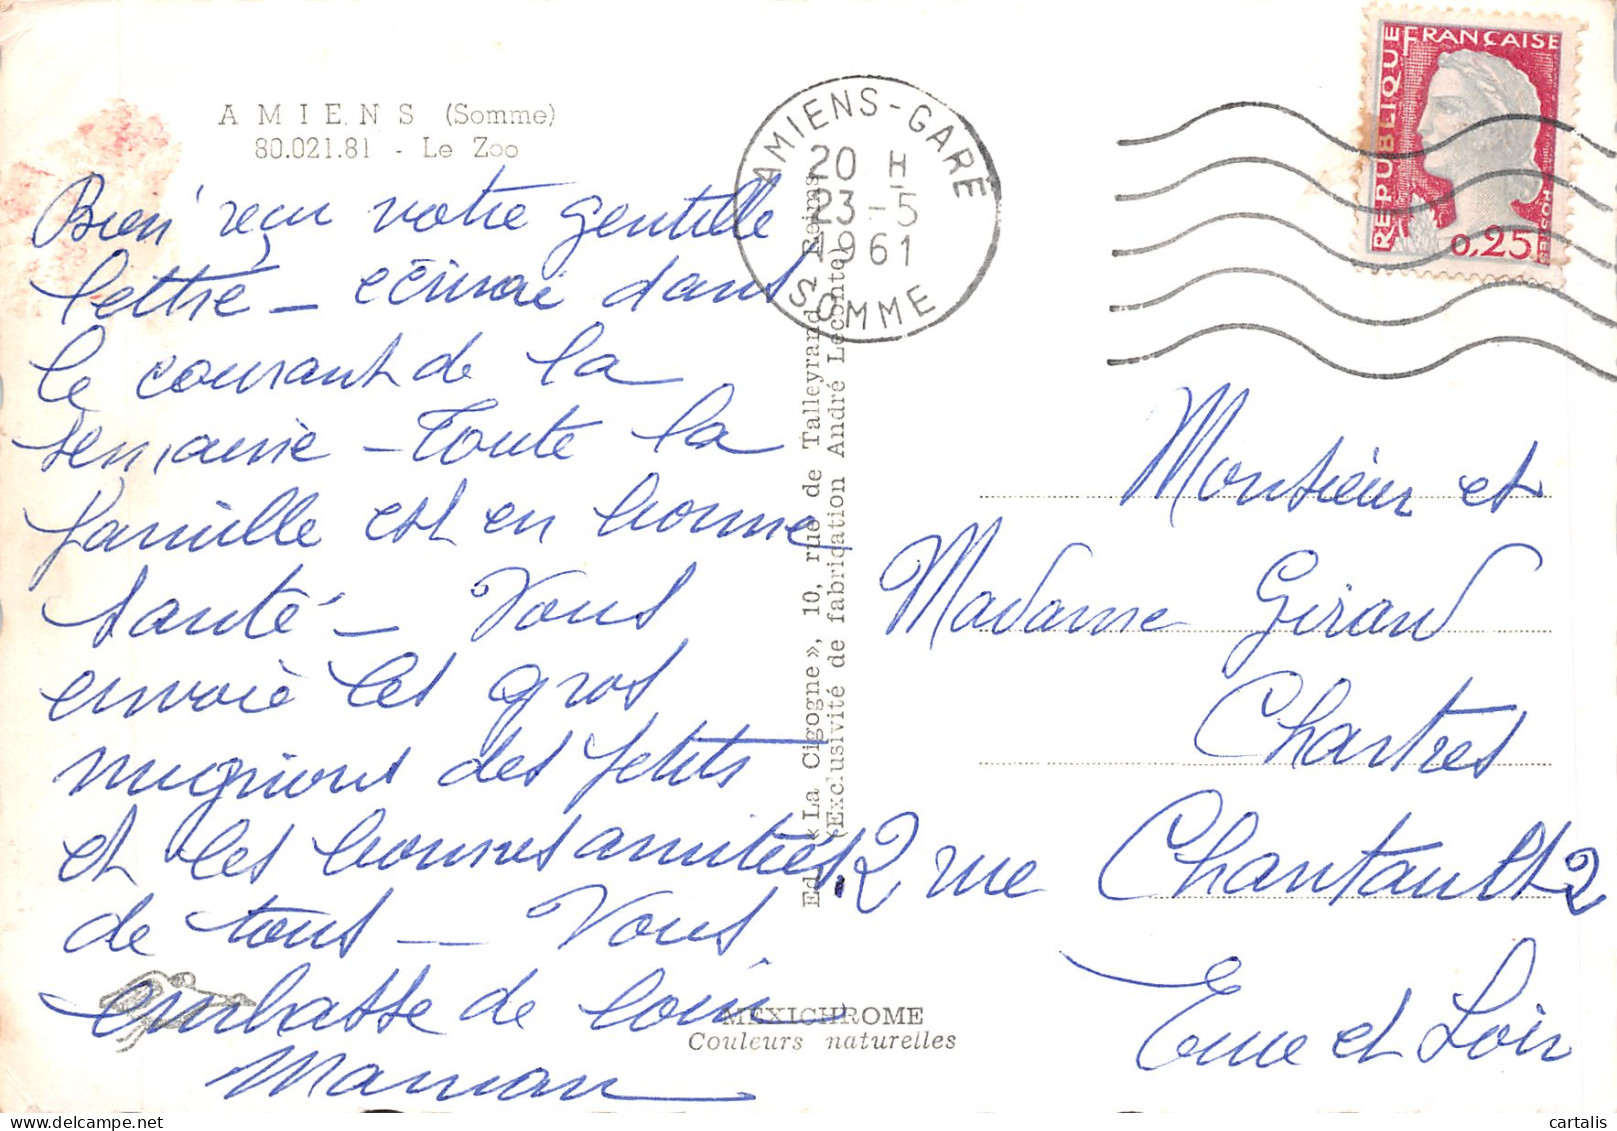 AMIENS (Somme)
80.021.81 - Le Zoo
Bien reçu votre gentille
lettre - écrirai dans
le courant de la
semaine - Toute la
famille est en bonne
santé - Vous
envoie les gros
mignons des petits
et les bonnes amitiés
de tous - Vous
embrasse de loin
Maman
Ed. « La Cigogne », 10, rue de Talleyrand - Reims
(Exclusivité de fabrication André Leconte)
MEXICHROME
Couleurs naturelles
AMIENS-GARE
20 H
23-5
1961
SOMME
REPUBLIQUE FRANÇAISE
0,25
Monsieur et
Madame Giraud
Chartres
12 rue Chantault 2
Eure et Loir
cartalis